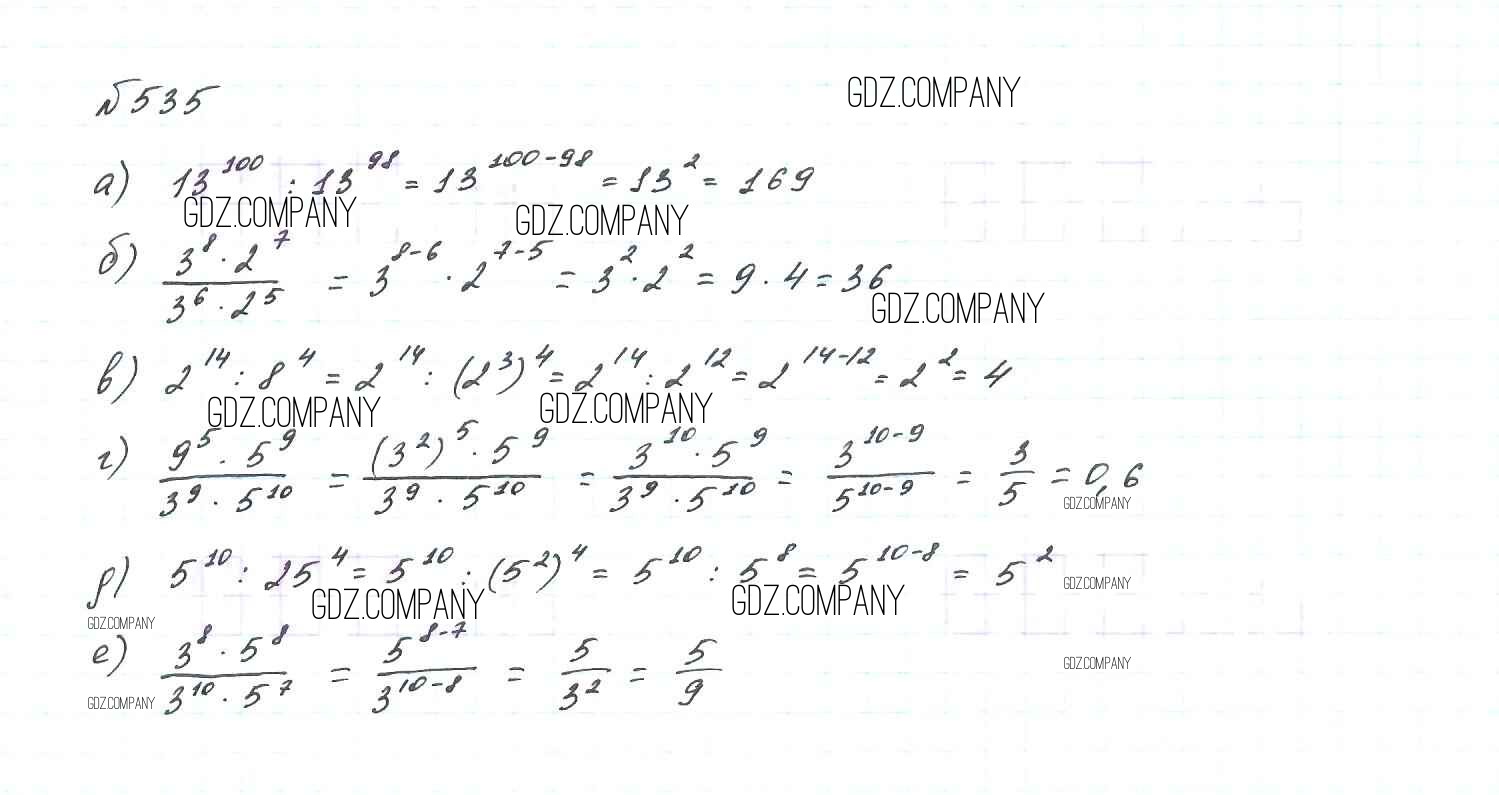 № 535
GDZ.COMPANY
а) 13^100 : 13^98 = 13^(100-98) = 13^2 = 169
GDZ.COMPANY GDZ.COMPANY
б) (3^8 · 2^7)/(3^6 · 2^5) = 3^(8-6) · 2^(7-5) = 3^2 · 2^2 = 9 · 4 = 36
GDZ.COMPANY
в) 2^14 : 8^4 = 2^14 : (2^3)^4 = 2^14 : 2^12 = 2^(14-12) = 2^2 = 4
GDZ.COMPANY GDZ.COMPANY
г) (9^5 · 5^9)/(3^9 · 5^10) = ((3^2)^5 · 5^9)/(3^9 · 5^10) = (3^10 · 5^9)/(3^9 · 5^10) = 3^(10-9)/5^(10-9) = 3/5 = 0,6
GDZ.COMPANY
д) 5^10 : 25^4 = 5^10 : (5^2)^4 = 5^10 : 5^8 = 5^(10-8) = 5^2
GDZ.COMPANY
GDZ.COMPANY GDZ.COMPANY
GDZ.COMPANY
е) (3^8 · 5^8)/(3^10 · 5^7) = 5^(8-7)/3^(10-8) = 5/3^2 = 5/9
GDZ.COMPANY
GDZ.COMPANY